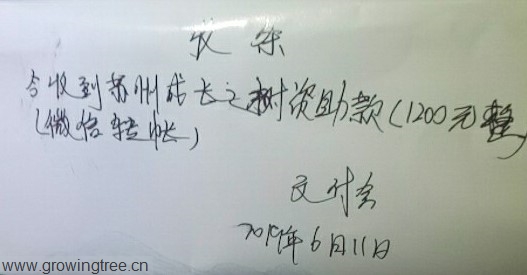 收条
今收到苏州成长之树资助款(1200元整)
(微信转帐)
2019年6月11日
www.growingtree.cn